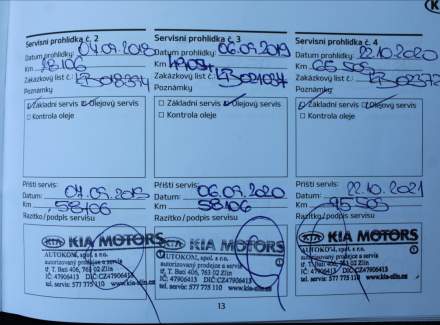 Servisní prohlídka č. 2
Datum prohlídky: 04.09.2018
Km 28106
Zakázkový list č.:
Poznámky
Základní servis Olejový servis
Kontrola oleje
Příští servis:
Datum: 04.09.2019
Km 58106
Razítko/podpis servisu
KIA MOTORS
AUTOKOM, spol. s r.o.
autorizovaný prodejce a servis
tř. T. Bati 406, 763 02 Zlín
IČ: 47906413 DIČ:CZ47906413
tel. servis: 577 775 110 www.kia-zlin.cz
Servisní prohlídka č. 3
Datum prohlídky: 06.09.2019
Km
Zakázkový list č.:
Poznámky
Základní servis Olejový servis
Kontrola oleje
Příští servis:
Datum: 06.09.2020
Km 58106
Razítko/podpis servisu
KIA MOTORS
AUTOKOM, spol. s r.o.
autorizovaný prodejce a servis
tř. T. Bati 406, 763 02 Zlín
IČ: 47906413 DIČ:CZ47906413
tel. servis: 577 775 110 www.kia-zlin.cz
Servisní prohlídka č. 4
Datum prohlídky: 22.10.2020
Km 65 505
Zakázkový list č.:
Poznámky
Základní servis Olejový servis
Kontrola oleje
Příští servis:
Datum: 22.10.2021
Km 95 505
Razítko/podpis servisu
KIA MOTORS
AUTOKOM, spol. s r.o.
autorizovaný prodejce a servis
tř. T. Bati 406, 763 02 Zlín
IČ: 47906413 DIČ:CZ47906413
tel. servis: 577 775 110 www.kia-zlin.cz
13